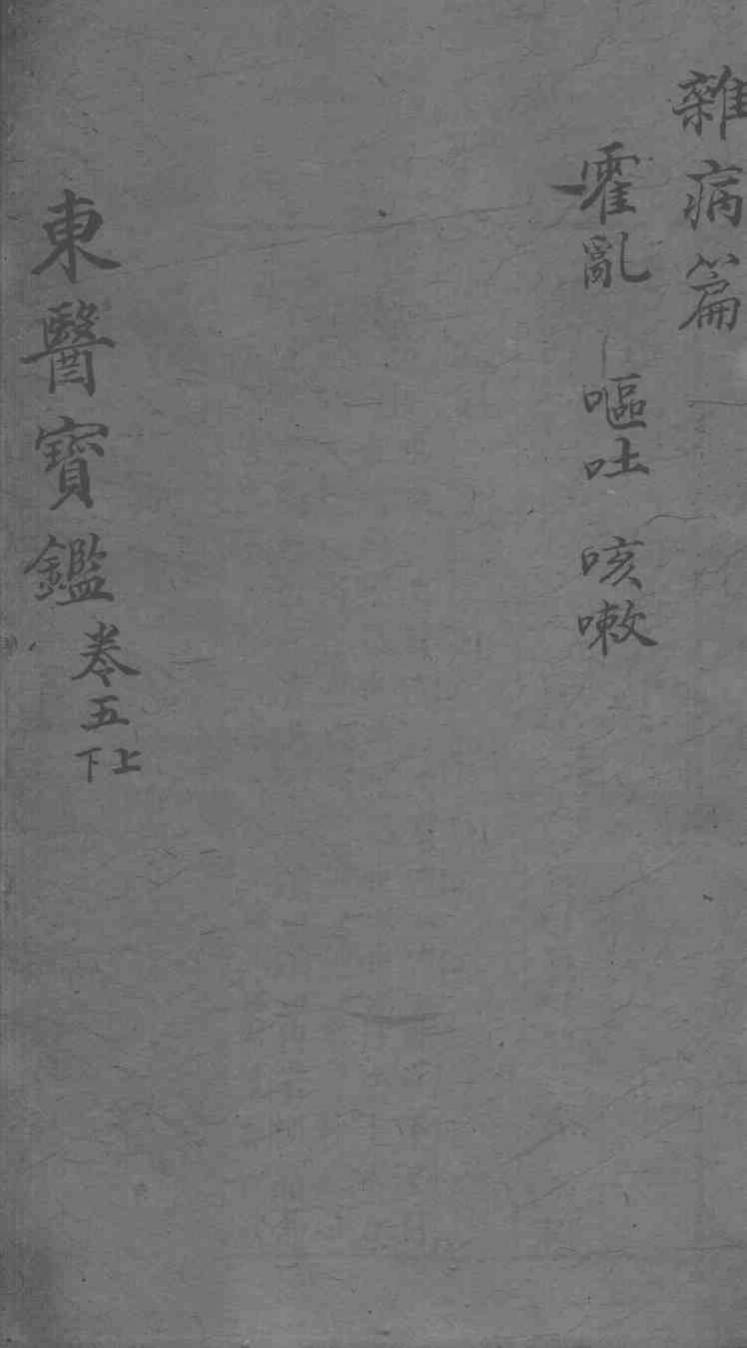 雜病篇
霍亂 嘔吐 咳嗽
東醫寶鑑 卷五 上下